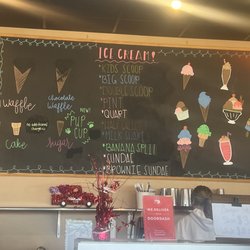 ICE CREAM!
KIDS SCOOP
BIG SCOOP
DOUBLE SCOOP
PINT
QUART
MILK SHAKE
BANANA SPLIT
SUNDAE
BROWNIE SUNDAE
Waffle
chocolate
Waffle
NEW!
PUP
CUP
Cake
Sugar
WE DELIVER
WITH
DOORDASH